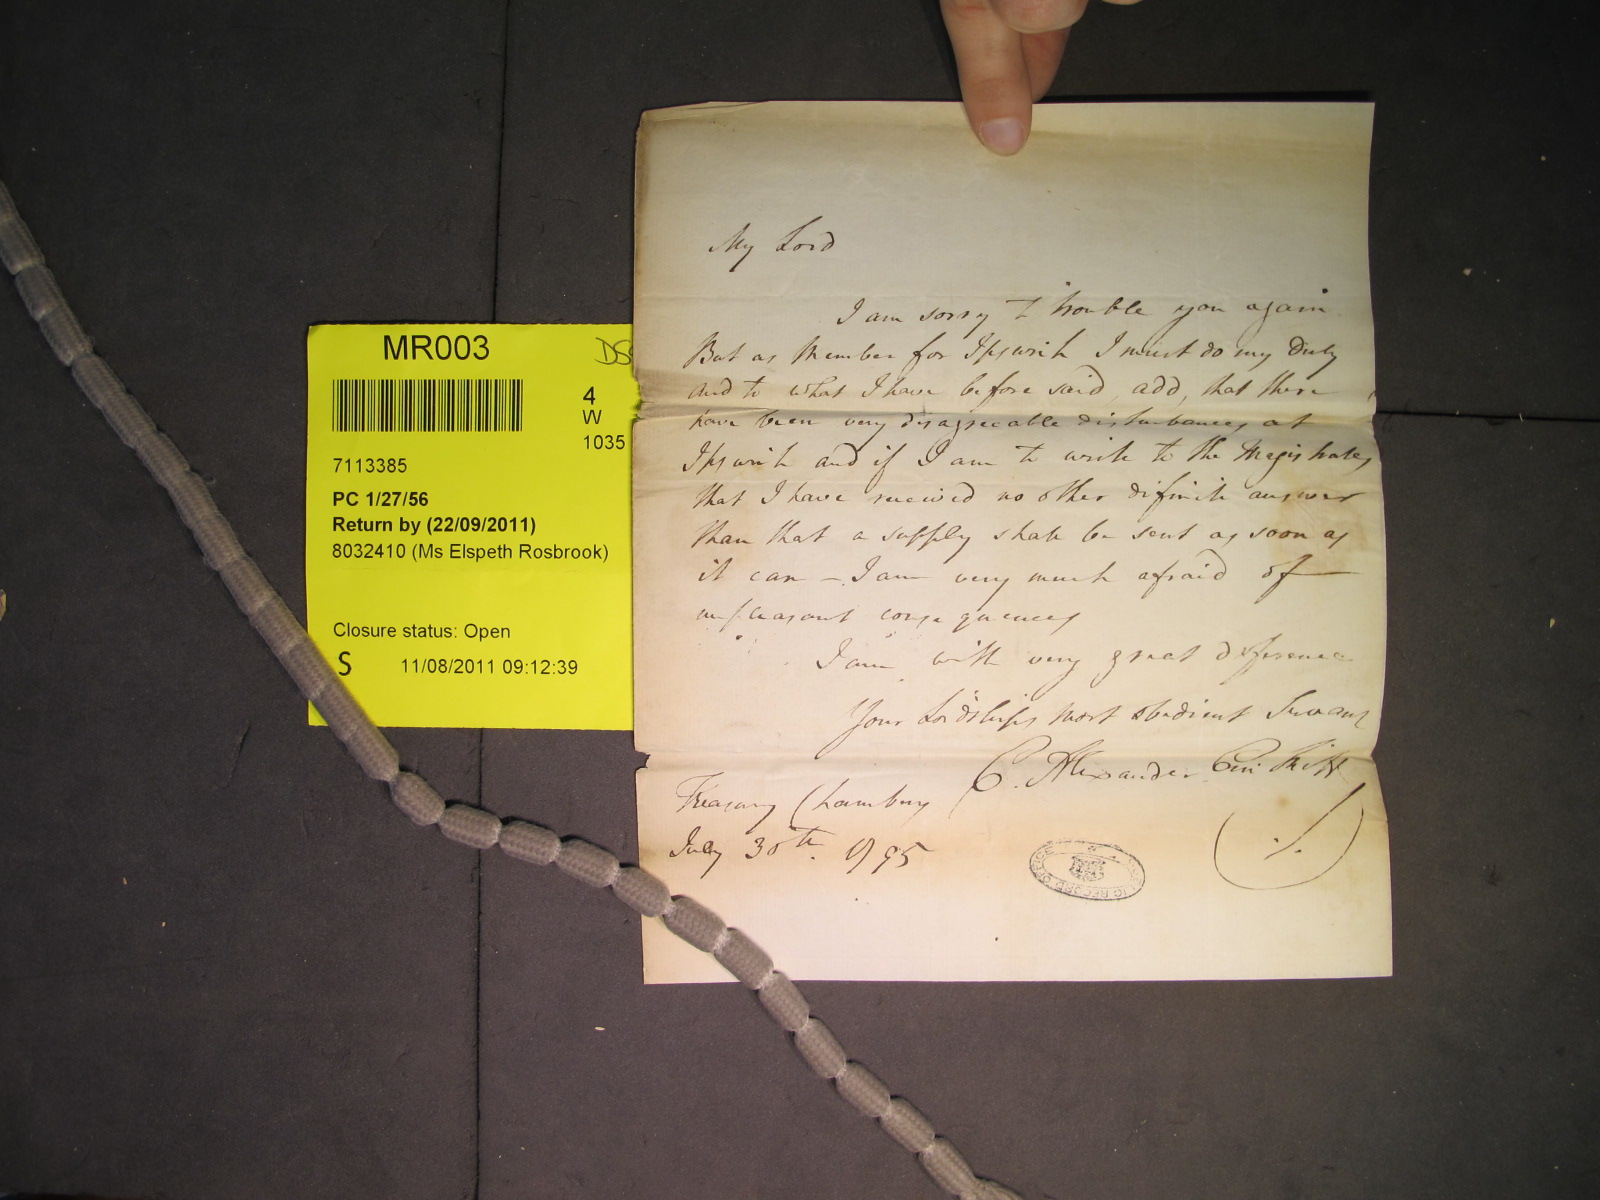 MR003
DS
4
W
1035
7113385
PC 1/27/56
Return by (22/09/2011)
8032410 (Ms Elspeth Rosbrook)
Closure status: Open
S 11/08/2011 09:12:39
My Lord
I am sorry to trouble you again
But as Member for Ipswich I must do my Duty
and to what I have before said, add, that there
have been very disagreeable disturbances at
Ipswich and if I am to write to the Magistrates
that I have received no other difinite answer
than that a supply shall be sent as soon as
it can – I am very much afraid of
unpleasant consequences
I am with very great deference
Your Lordships most obedient Servant
C. Alexander Crickitt
Treasury Chambers
July 30th. 1795
PUBLIC RECORD OFFICE